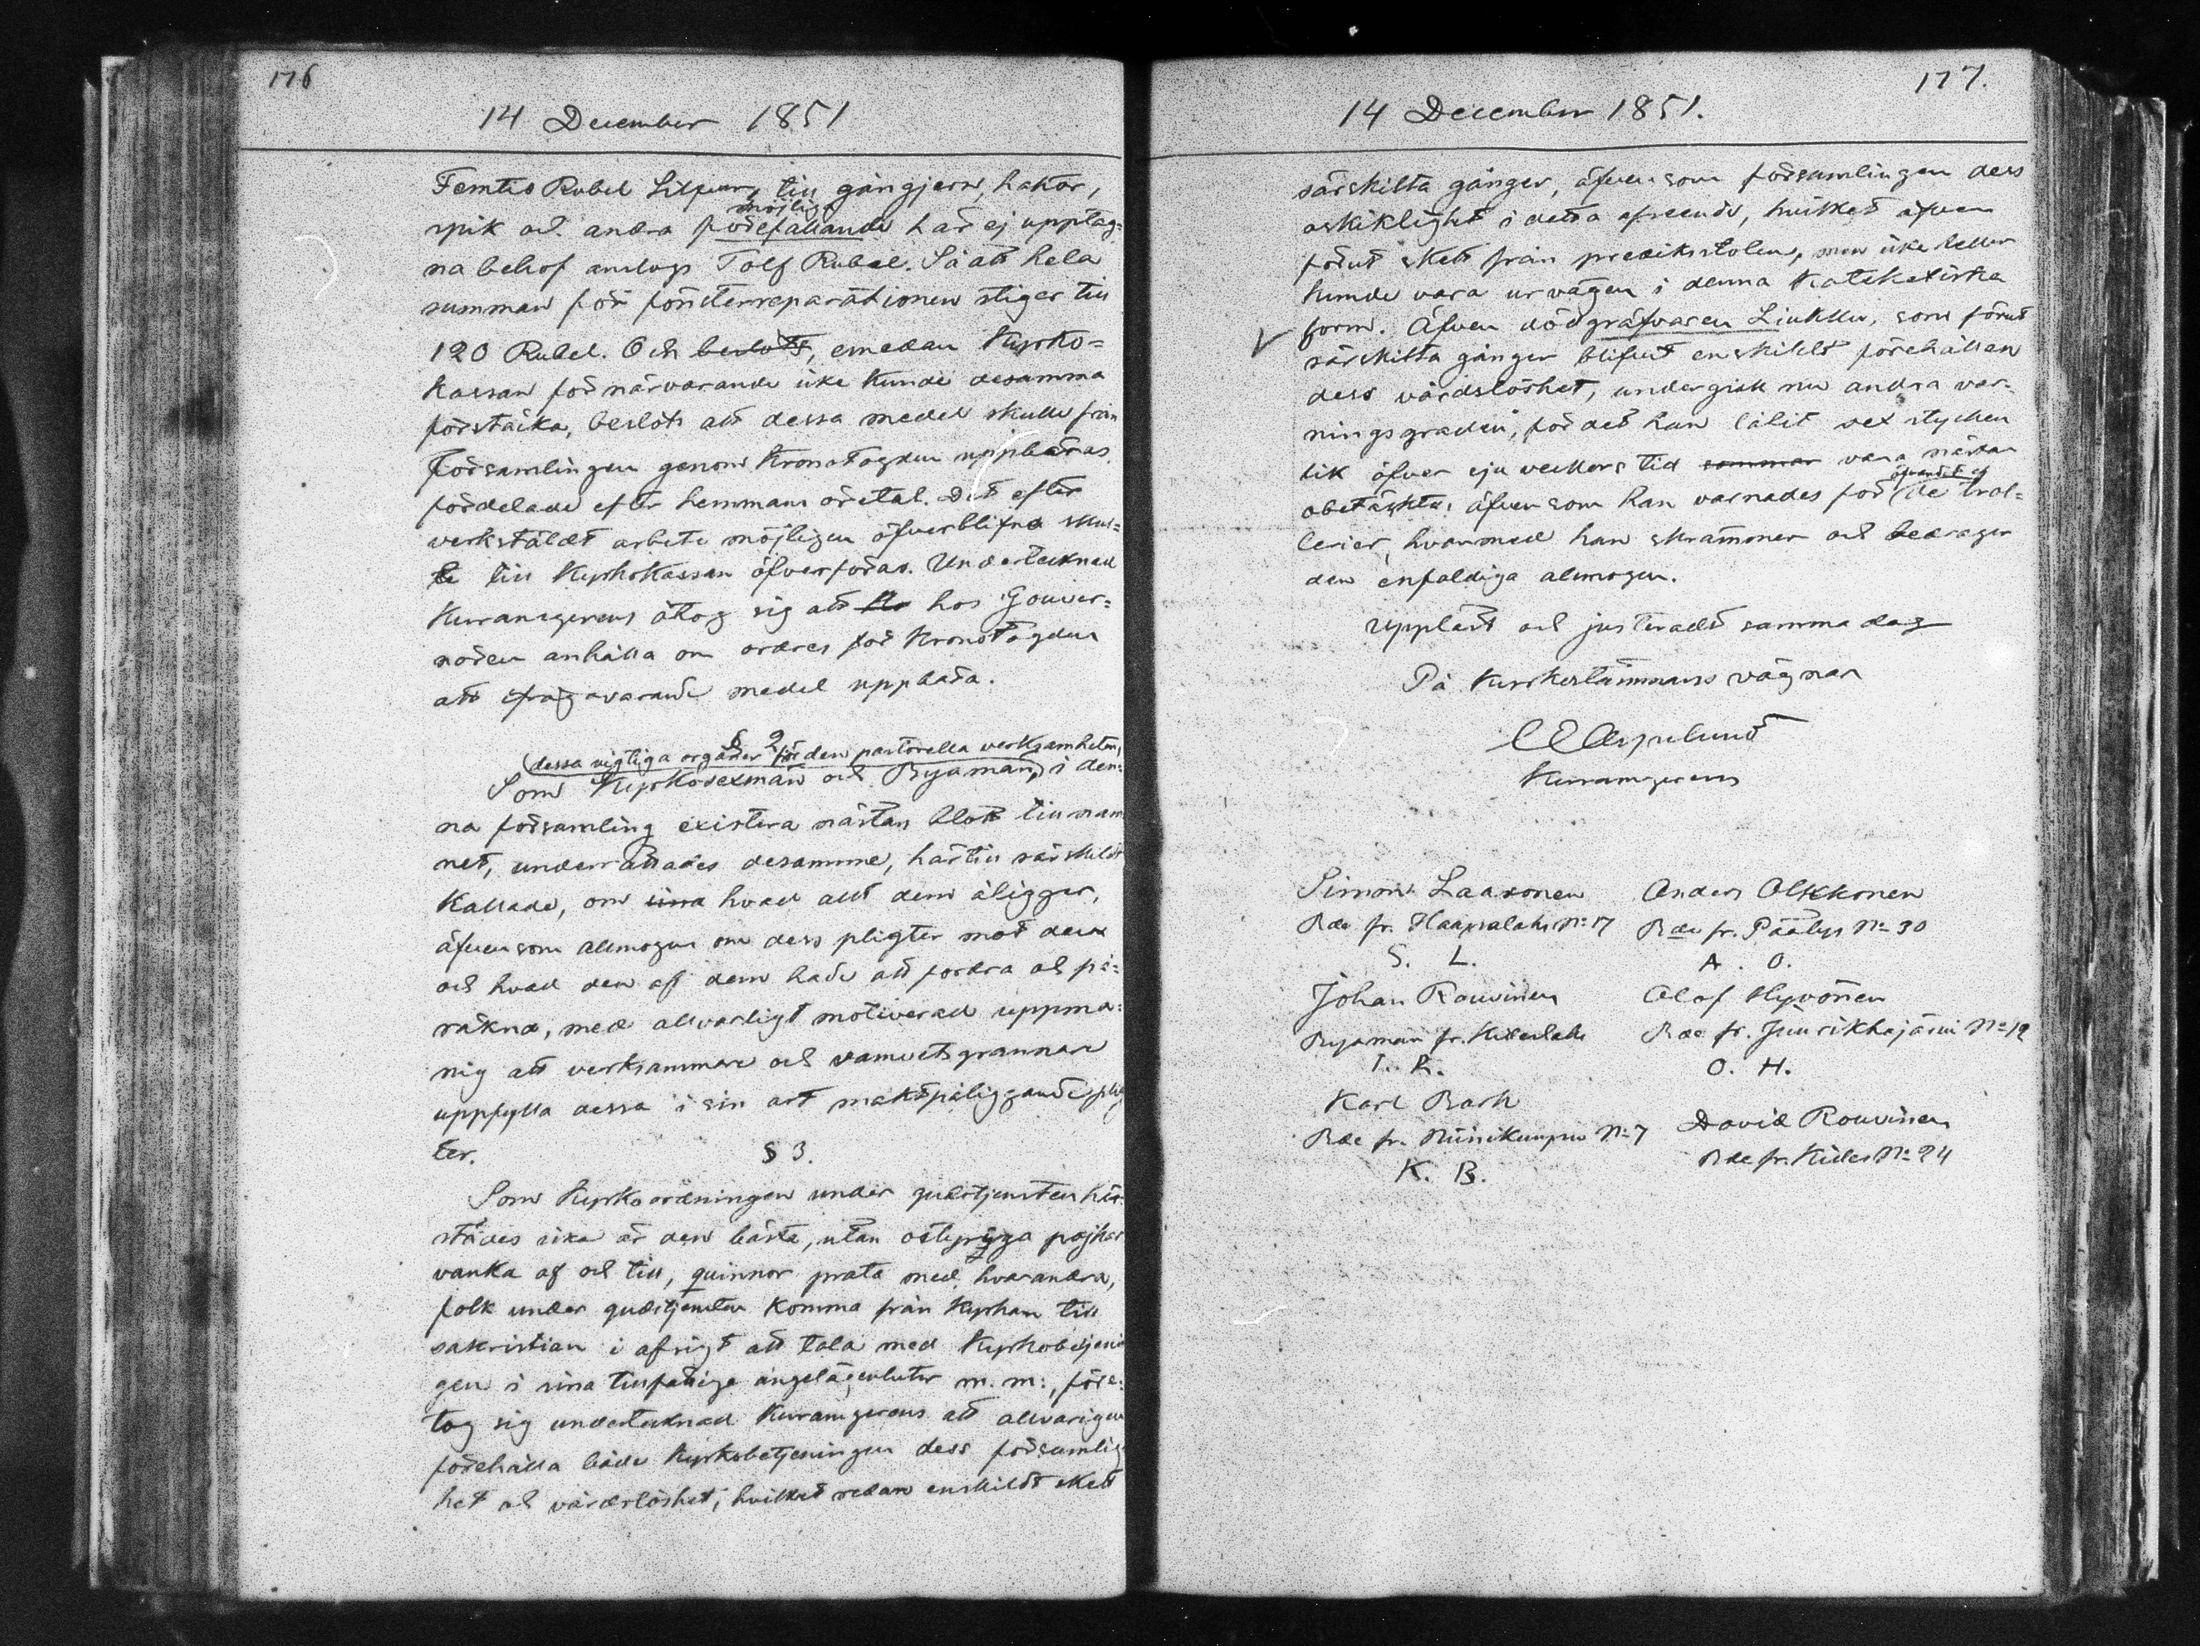 176
14 December 1851
Femtio Rubel Silfver, till gångjern, hakor,
möjlige
spik och andra förefallande här ej upptag=
na behof anslogs Tolf Rubel. Så att hela
summan för fönsterreparationen stiger till
120 Rubel. Och beslöts, emedan Kyrko=
kassan för närvarande icke kunde desamma
förstäcka, beslöts att dessa medel skulle från
Församlingen genom Kronofogden uppbäras
fördelade efter hemmans öretal. Det efter
verkstäldt arbete möjligen öfverblifna skul=
le till Kyrkokassan öfverföras. Undertecknad
Kuramgerens åtog sig att hos Gouver=
nören anhålla om ordres för Kronofogden
att ifrågavarande medel uppbära.
§ 2
(dessa vigtiga organer för den pastorella verksamheten,
Som Kyrkosexmän och Byamän, i den=
na församling existera nästan blott till nam
net, underrättades desamme, härtill särskildt
kallade, om sina hvad allt dem åligger,
äfvensom allmogen om dess pligter mot dem
och hvad den af dem hade att fordra och på=
räkna, med allvarligt motiverad uppma=
nig att verksammare och samvetsgrannare
uppfylla dessa i sin art maktpåliggande plig
ter.
§ 3.
Som Kyrkoordningen under gudstjensten här
städes icke är den bästa, utan ostyryga pojkar
vanka af och till, quinnor prata med hvarandra,
folk under gudstjensten komma från Kyrkan till
sakristian i afsigt att tala med Kyrkobetjeni
gen i sina tillfälliga angelägenheter m. m:, före=
tog sig undertecknad Kuramgerens att allvarligen
förehålla både Kyrkobetjeningen dess försumlig
het och vårdslöshet, hvilket redan enskildt skett
177.
14 December 1851.
särskilta gånger, äfvensom församlingen dess
oskiklighet i detta afseende, hvilket äfven
förut skett från predikstolen, men icke heller
kunde vara ur vägen i denna Kateketiska
form. Äfven dödgräfvaren Liukku, som förut
särskilta gånger blifvit enskildt förehållen
dess vårdslöshet, undergick nu andra var=
ningsgraden, för det han låtit sex stycken
lik öfver sju veckors tid sommar vara nästan
obetäckta, äfvensom han varnades för de trol=
lerier, hvarmed han skrämmer och bedrager
den enfaldiga allmogen.
Uppläst och justeradt samma dag
På Kyrkostämmans vägnar
C E Aspelund
Kuramgerens
Simon Laaxonen
Bde fr. Haapalaks No 17
S. L.
Anders Olkkonen
Bde fr. Päälys No 30
A. O.
Johan Rouvinen
Byaman fr. Kiteelaks
I. R.
Olof Hyvönen
Bde fr. Juurikkajärvi No 12
O. H.
Karl Bark
Bde fr. Niinikumpu No 7
K. B.
David Rouvinen
Bde fr. Kides No 24